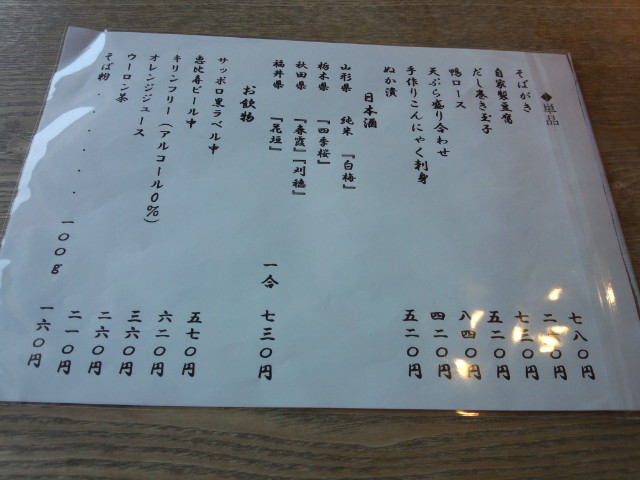 ◆単品
そばがき 七八〇円
自家製豆腐
だし巻き玉子 七三〇円
鴨ロース 五二〇円
天ぷら盛り合わせ 八四〇円
手作りこんにゃく刺身 四二〇円
ぬか漬 五二〇円
日本酒
山形県 純米 『白梅』
栃木県 『四季桜』
秋田県 『春霞』『刈穂』
福井県 『花垣』 一合 七三〇円
お飲物
サッポロ黒ラベル中 五七〇円
恵比寿ビール中 六二〇円
キリンフリー（アルコール0%） 三六〇円
オレンジジュース 二六〇円
ウーロン茶 二一〇円
そば粉 ・・・・・・ 一〇〇g 一六〇円